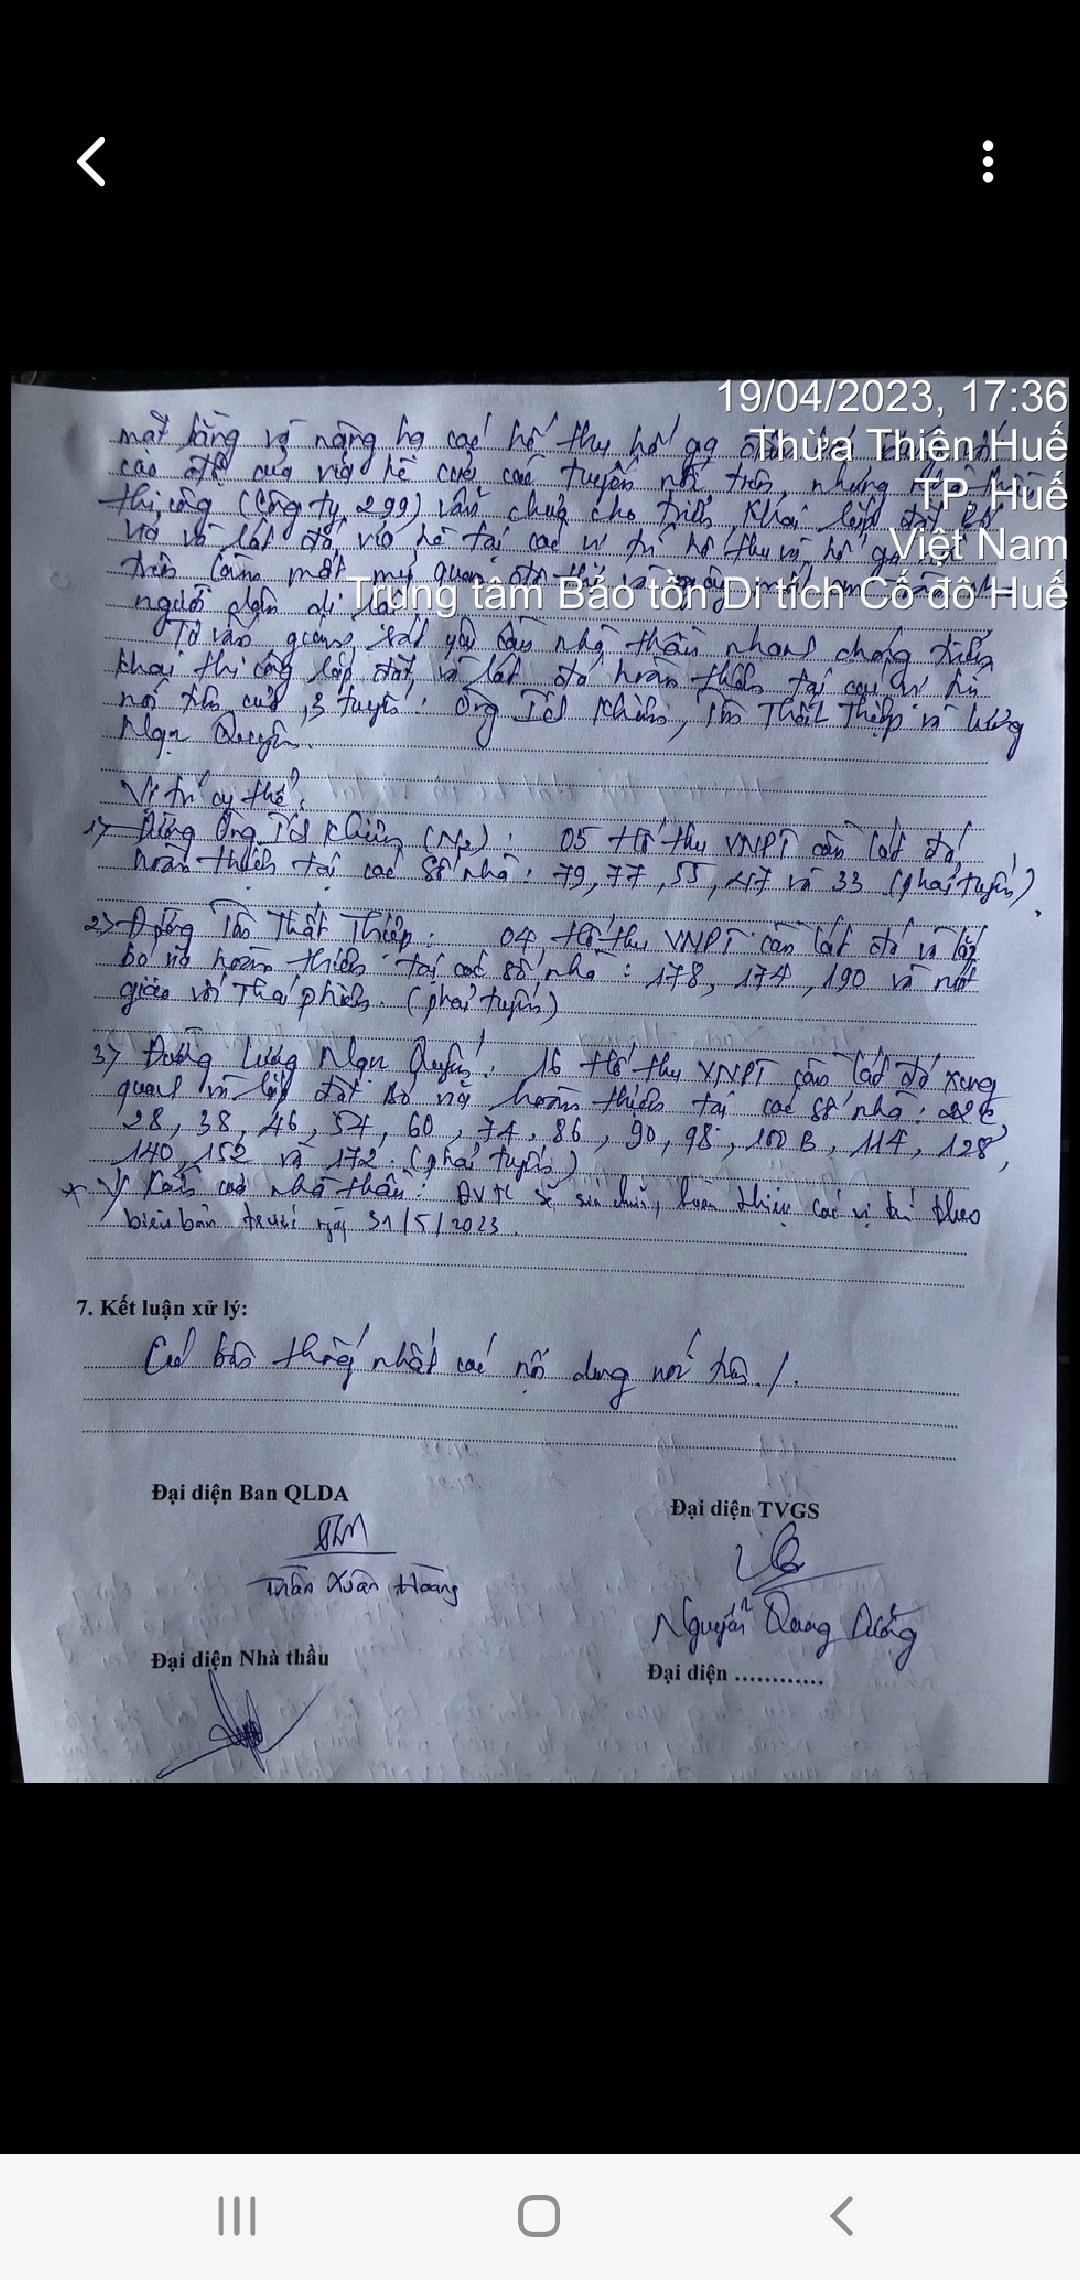 19/04/2023, 17:36
Thừa Thiên Huế
TP. Huế
Việt Nam
Trung tâm Bảo tồn Di tích Cố đô Huế
mặt bằng và nâng hạ các hố thu hố ga
cao độ của vỉa hè của các tuyến nói trên, nhưng
thi công (Công ty 299) vẫn chưa cho triển khai lắp đặt bó
vỉa và lát đá vỉa hè tại các vị trí hố thu và hố ga
trên làm mất mỹ quan đô thị
người dân đi lại
Tư vấn giám sát yêu cầu nhà thầu nhanh chóng triển
khai thi công lắp đặt và lát đá hoàn thiện tại các vị trí
nói trên của 3 tuyến: Ông Ích Khiêm, Tôn Thất Thiệp và Lương
Ngọc Quyến.
Vị trí cụ thể:
1) Đường Ông Ích Khiêm (N2): 05 Hố thu VNPT cần lát đá
hoàn thiện tại các số nhà: 79, 77, 55, 47 và 33 (phải tuyến)
2) Đường Tôn Thất Thiệp: 04 Hố thu VNPT cần lát đá và lắp
bó vỉa hoàn thiện tại các số nhà: 178, 174, 190 và nút
giao với Thái Phiên. (phải tuyến)
3) Đường Lương Ngọc Quyến: 16 Hố thu VNPT cần lát đá xung
quanh và lắp đặt bó vỉa hoàn thiện tại các số nhà:
28, 38, 46, 54, 60, 74, 86, 90, 98, 102B, 114, 128,
140, 152 và 172. (phải tuyến)
* Ý kiến của nhà thầu: ĐVTC sẽ sửa chữa, hoàn thiện các vị trí theo
biên bản trước ngày 31/5/2023.
7. Kết luận xử lý:
Các bên thống nhất các nội dung nói trên./.
Đại diện Ban QLDA
Đại diện TVGS
Trần Xuân Hoàng
Nguyễn Quang Dũng
Đại diện Nhà thầu
Đại diện ............